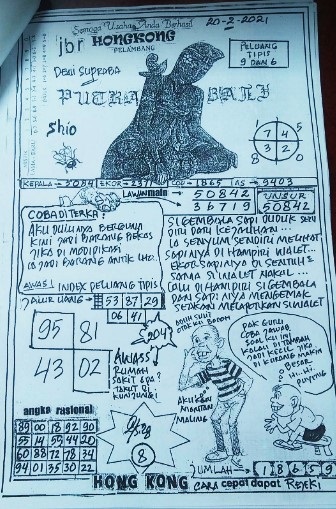 Semoga Usaha Anda Berhasil
20-2-2021
jbr HONGKONG
PELAMBANG
PELUANG
TIPIS
9 DAN 6
Dewi Suproba
PUTRA BALI
Shio
1 7 4 5
8 3 2 0
KEPALA → 5084 EKOR → 2371 COP → 1865 AS → 9403
LAWAN main
50842
36719
UNSUR
50842
COBA DITERKA:
AKU DULUNYA BERGUNA
KINI JADI BARANG BEKAS
JIKA DI MODIPIKASI
IA JADI BARANG ANTIK LHO.
AWAS! INDEX PELUANG TIPIS
JALUR UANG 53 87 29
06 41
204
SI GEMBALA SAPI DUDUK SEN
DIRI DARI KEJAUHAN...
IA SENYUM SENDIRI MELIHAT
SAPINYA DI HAMPIRI WALET.
EKOR SAPINYA DI SENTUH2
SAMA SI WALET NAKAL...
LALU DI HAMPIRI SI GEMBALA
DAN SAPINYA MENGEMAK
SEAKAN MELAPORKAN SI WALET
95 81
43 02
AWASS
RUMAH
SAKIT APA?
TAKUT DI
KUNJUNGI
AKU KAN
MANTAN
MALING
PAK GURU
COBA JAWAB
SOAL KU INI
KALAU DI TAMBAH
JADI KECIL JIKA
DI KURANG MAKIN
BESAR.
HI..HI
PUYENG
angka rasional
89 00 18 92 90
55 14 55 44 20
60 88 72 78 34
94 01 35 30 22
8
JUMLAH → 1 8 6 5 9
HONG KONG CARA cepat dapat REJEKI